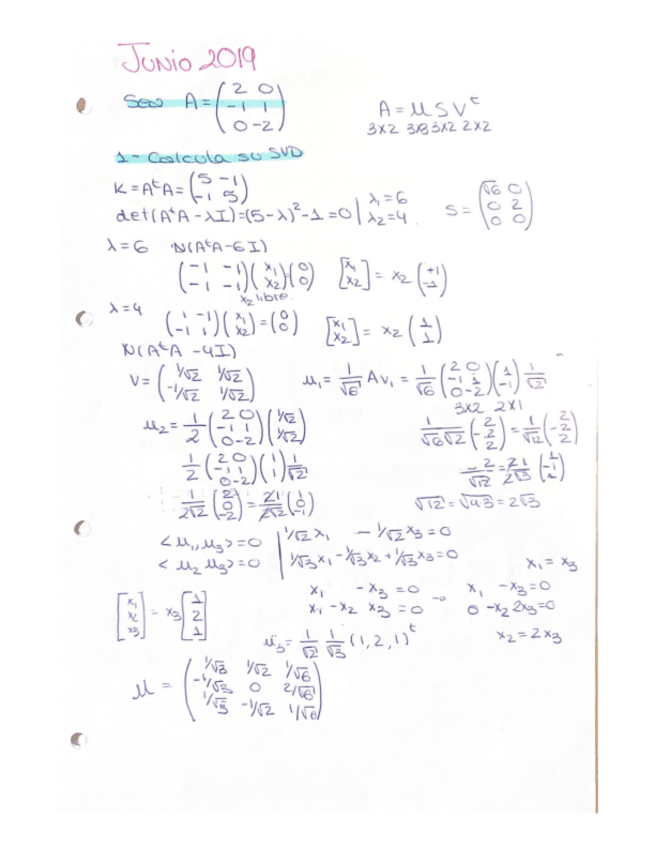 Junio 2019
Sea A = (2 0; -1 1; 0 -2)
A = U S V^t
3x2 3x3 3x2 2x2
1- Calcula su SVD
K = A^tA = (5 -1; -1 5)
det(A^tA - λI) = (5-λ)^2 - 1 = 0 | λ1 = 6 λ2 = 4
S = (√6 0; 0 2; 0 0)
λ = 6 N(A^tA - 6I)
(-1 -1; -1 -1)(x1; x2) = (0; 0) [x1; x2] = x2 (+1; -1)
x2 libre
λ = 4
(1 -1; -1 1)(x1; x2) = (0; 0) [x1; x2] = x2 (1; 1)
N(A^tA - 4I)
V = (1/√2 1/√2; -1/√2 1/√2)
u1 = 1/√6 Av1 = 1/√6 (2 0; -1 1; 0 -2)(1; -1) 1/√2
3x2 2x1
u2 = 1/2 (2 0; -1 1; 0 -2)(1/√2; 1/√2)
1/√6√2 (2; -2; 2) = 1/√12 (2; -2; 2)
1/2 (2 0; -1 1; 0 -2)(1; 1) 1/√2
1/2√2 (2; 0; -2) = 21/2√2 (1; 0; -1)
√12 = √4·3 = 2√3
<u1, u3> = 0 | 1/√2 x1 - 1/√2 x3 = 0
<u2 u3> = 0 | 1/√3 x1 - 1/√3 x2 + 1/√3 x3 = 0
x1 = x3
x1 - x3 = 0 → x1 - x3 = 0
x1 - x2 x3 = 0 0 - x2 2x3 = 0
[x1; x2; x3] = x3 [1; 2; 1]
x2 = 2x3
u3 = 1/√2 1/√3 (1, 2, 1)^t
U = (1/√3 1/√2 1/√6; -1/√3 0 2/√6; 1/√3 -1/√2 1/√6)